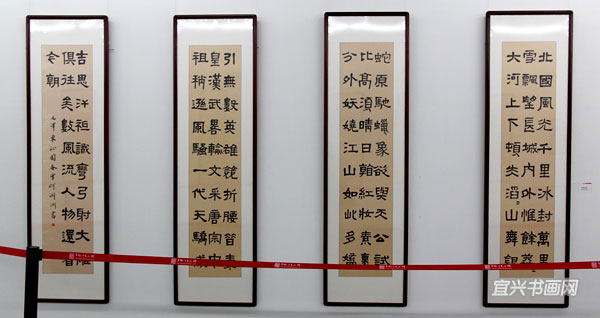 北國風光千里冰封萬里
雪飄望長城内外惟餘莽
大河上下頓失滔〻山舞銀
蛇原馳蠟象欲與天公試
比高須晴日看紅妝素裹
分外妖嬈江山如此多嬌
引無數英雄競折腰昔秦
皇漢武畧輸文采唐宗宋
祖稍遜風騷一代天驕成
吉思汗祇識彎弓射大雕
俱往矣數風流人物還看
今朝
毛澤東沁園春雪
宜兴书画网